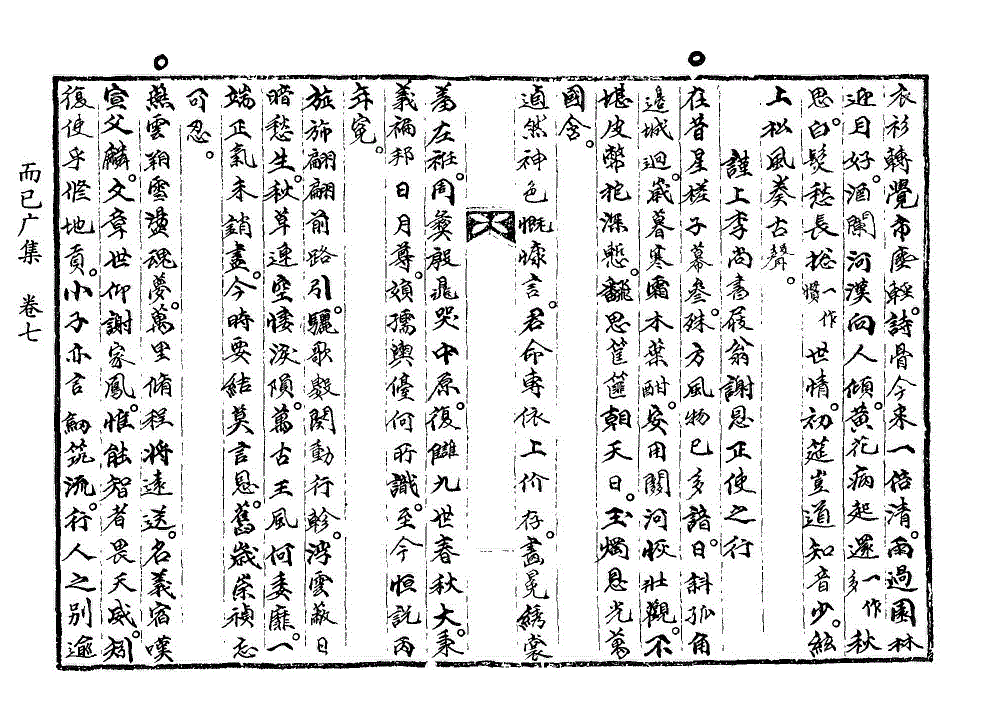 衣衫轉覺市塵輕詩骨今来一倍清雨過園林
迎月好酒闌河漢向人傾黄花病起還多一作秋
思白髮愁長摠一作慣世情初莚豈道知音少絃
上松風奏古聲
謹上李尚書屐翁謝恩正使之行
在昔星槎子幕叅殊方風物已多諳日斜孤角
邉城迥歲暮寒霜木葉酣安用關河恢壯觀不
堪皮幣抱深慙飜思筐篚朝天日玉燭恩光萬
國含
逌然神色慨慷言君命専依上价存畵冕綉裳
爲左衽周彛殷鬼哭中原復讎九世春秋大秉
義禍邦日月尊嬪孺輿儓何所識至今恒説丙
年寃
旌斾翩翩前路引驪歌數闋動行軫浮雲蔽日
暗愁生秋草連空悽涙隕萬古王風何委靡一
端正氣未銷盡今時要結莫言恩舊歲崇禎忘
可忍
燕雲朔雪盪魂夢萬里脩程將遠送名義宿嘆
宣父麟文章世仰謝家鳳惟能智者畏天威矧
復使乎修地貢小子亦言
流行人之別逾
而已广集 卷七